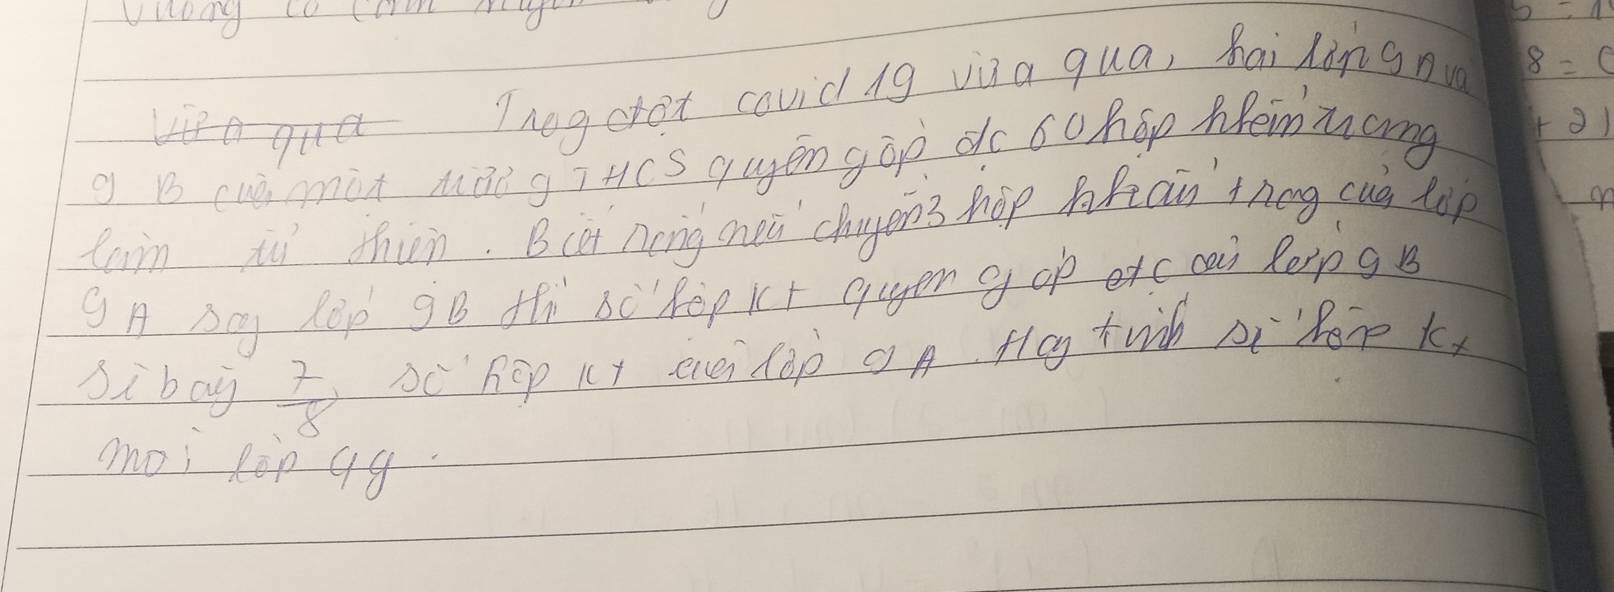 vuông có
Trog đợt covid 19 vừa qua, hai lớp 9A và
9B của một trườg THCS quyên góp đc 60 hộp khẩu trang
làm từ thiện. Biết rằng nếu chuyển 3 hộp khẩu trang của lớp
9A sag lớp 9B thì số hộp KT quyên góp đc của lớp 9B
sẽ bằg 7/8 số hộp KT của lớp 9A. Hãy tính số hộp KT
mỗi lớp qg.
8 =
+ 2)